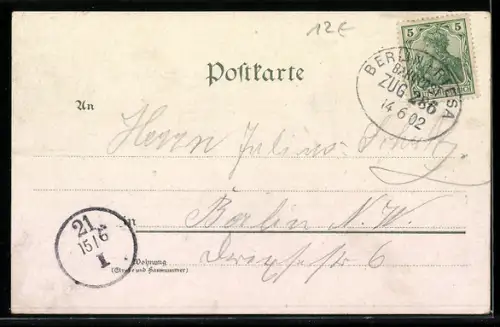 12€
5 5
Postkarte
BERLIN RIESA
BAHNPOST
ZUG 286
14 6 02
An
Herrn Julius Schulz
in Berlin N.W.
21
15/6
I
Wohnung
(Straße und Hausnummer)
6